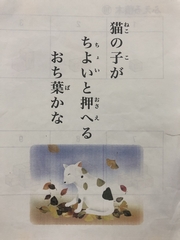 猫の子が
ちよいと押へる
おち葉かな